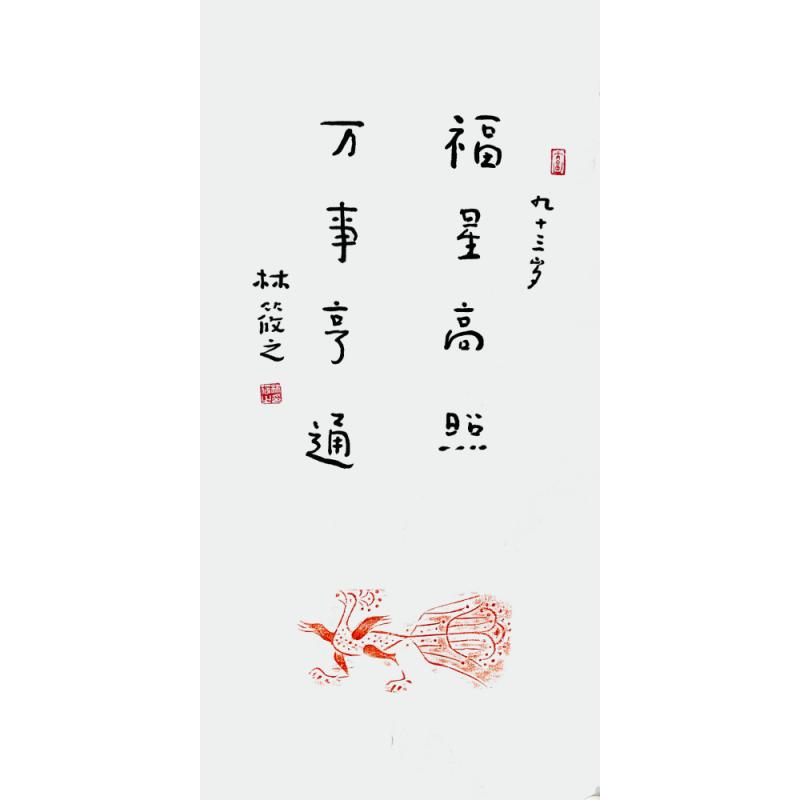 九十三岁
福星高照
万事亨通
林筱之